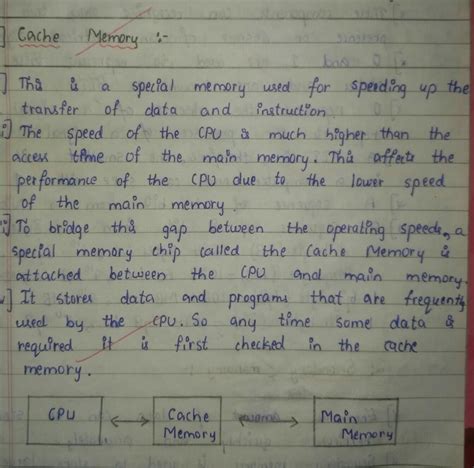 ] Cache Memory :-
] This is a special memory used for speeding up the
transfer of data and instruction
i] The speed of the CPU is much higher than the
access time of the main memory. This affects the
performance of the CPU due to the lower speed
of the main memory.
ii] To bridge this gap between the operating speeds, a
special memory chip called the Cache Memory is
attached between the CPU and main memory.
] It stores data and programs that are frequently
used by the CPU. So any time some data is
required it is first checked in the cache
memory.
CPU Cache Main
Memory Memory